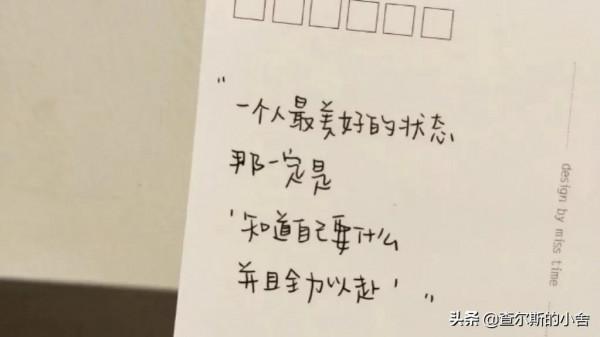 "一个人最美好的状态
那一定是
'知道自己要什么
并且全力以赴'"
design by miss time
头条 @查尔斯的小舍